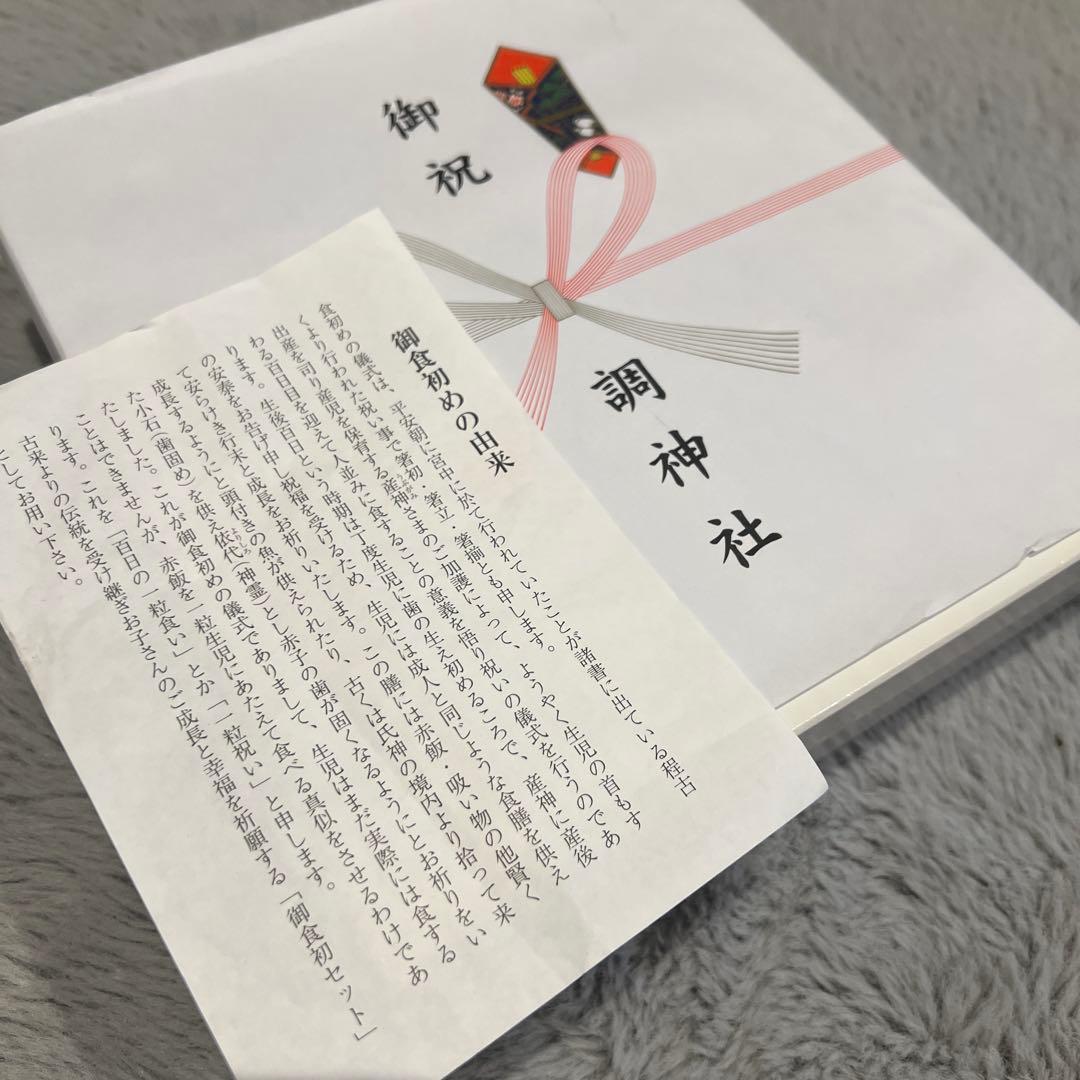 御祝
調神社
御食初めの由来
食初めの儀式は、平安朝に宮中に於て行われていたことが諸書に出ている程古
くより行われた祝い事で箸初・箸立・箸揃とも申します。
出産を司り産児を保育する産神さまのご加護によって、ようやく生児の首もす
わる百日目を迎えて人並みに食することの意義を悟り祝いの儀式を行うのであ
ります。生後百日という時期は丁度生児に歯の生え初めるころで、産神に産後
の安泰をお告げ申し祝福を受けるため、生児には成人と同じような食膳を供え
て安らけき行末と成長をお祈りいたします。この膳には赤飯・吸い物の他賢く
成長するようにと頭付きの魚が供えられたり、古くは氏神の境内より拾って来
た小石(歯固め)を供え依代(神霊)とし赤子の歯が固くなるようにとお祈りをい
たしました。これが御食初めの儀式でありまして、生児はまだ実際には食する
ことはできませんが、赤飯を一粒生児にあたえて食べる真似をさせるわけであ
ります。これを「百日の一粒食い」とか「一粒祝い」と申します。
古来よりの伝統を受け継ぎお子さんのご成長と幸福を祈願する「御食初セット」
としてお用い下さい。